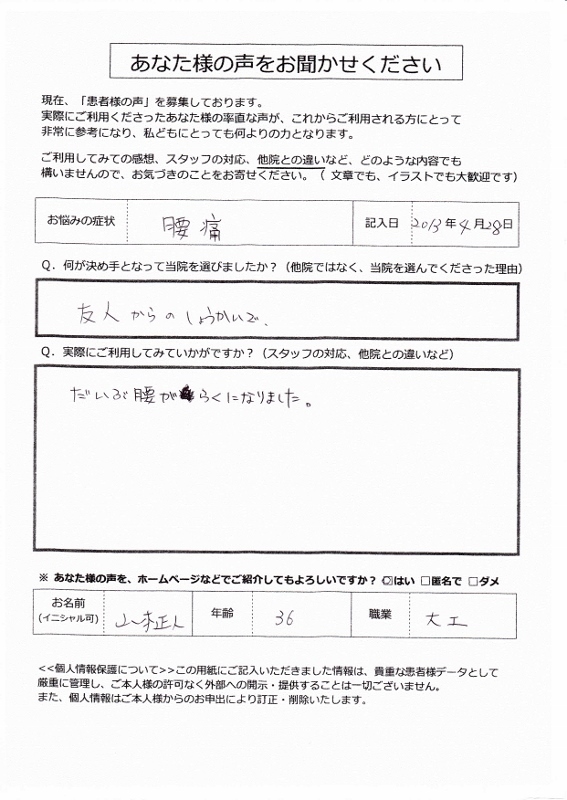 あなた様の声をお聞かせください
現在、「患者様の声」を募集しております。
実際にご利用くださったあなた様の率直な声が、これからご利用される方にとって
非常に参考になり、私どもにとっても何よりの力となります。
ご利用してみての感想、スタッフの対応、他院との違いなど、どのような内容でも
構いませんので、お気づきのことをお寄せください。（ 文章でも、イラストでも大歓迎です）
お悩みの症状 腰痛 記入日 2013年4月28日
Q．何が決め手となって当院を選びましたか？（他院ではなく、当院を選んでくださった理由）
友人からのしょうかいで、
Q．実際にご利用してみていかがですか？（スタッフの対応、他院との違いなど）
だいぶ腰がらくになりました。
※ あなた様の声を、ホームページなどでご紹介してもよろしいですか？ ☑はい □匿名で □ダメ
お名前 年齢 36 職業 大工
(イニシャル可)
<<個人情報保護について>>この用紙にご記入いただきました情報は、貴重な患者様データとして
厳重に管理し、ご本人様の許可なく外部への開示・提供することは一切ございません。
また、個人情報はご本人様からのお申出により訂正・削除いたします。